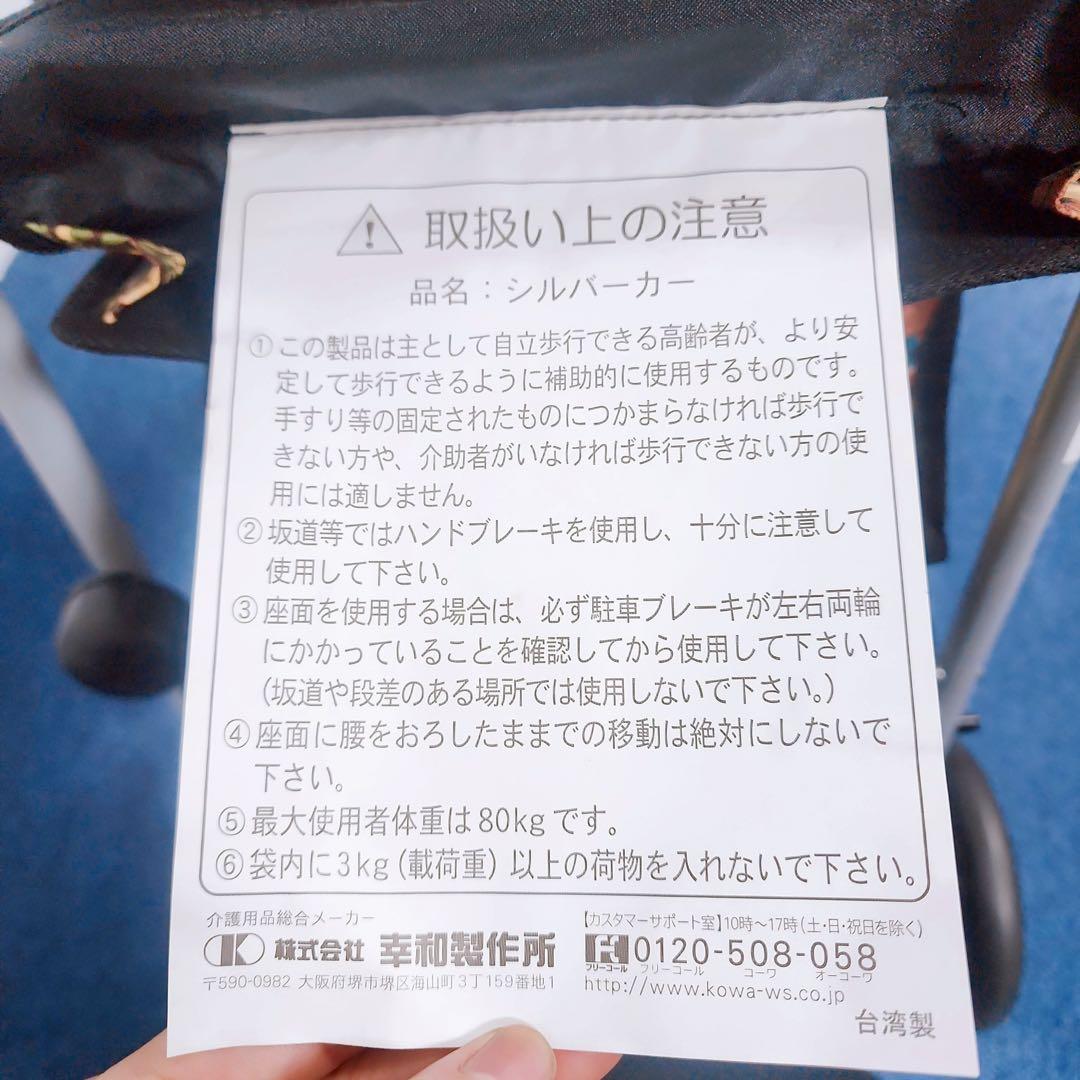 取扱い上の注意
品名：シルバーカー
①この製品は主として自立歩行できる高齢者が、より安
定して歩行できるように補助的に使用するものです。
手すり等の固定されたものにつかまらなければ歩行で
きない方や、介助者がいなければ歩行できない方の使
用には適しません。
②坂道等ではハンドブレーキを使用し、十分に注意して
使用して下さい。
③座面を使用する場合は、必ず駐車ブレーキが左右両輪
にかかっていることを確認してから使用して下さい。
（坂道や段差のある場所では使用しないで下さい。）
④座面に腰をおろしたままでの移動は絶対にしないで
下さい。
⑤最大使用者体重は80kgです。
⑥袋内に3kg（載荷重）以上の荷物を入れないで下さい。
介護用品総合メーカー
株式会社 幸和製作所
〒590-0982 大阪府堺市堺区海山町3丁159番地1
【カスタマーサポート室】10時～17時（土・日・祝日を除く）
フリーコール 0120-508-058
フリーコール コーワ オーコーワ
http://www.kowa-ws.co.jp
台湾製